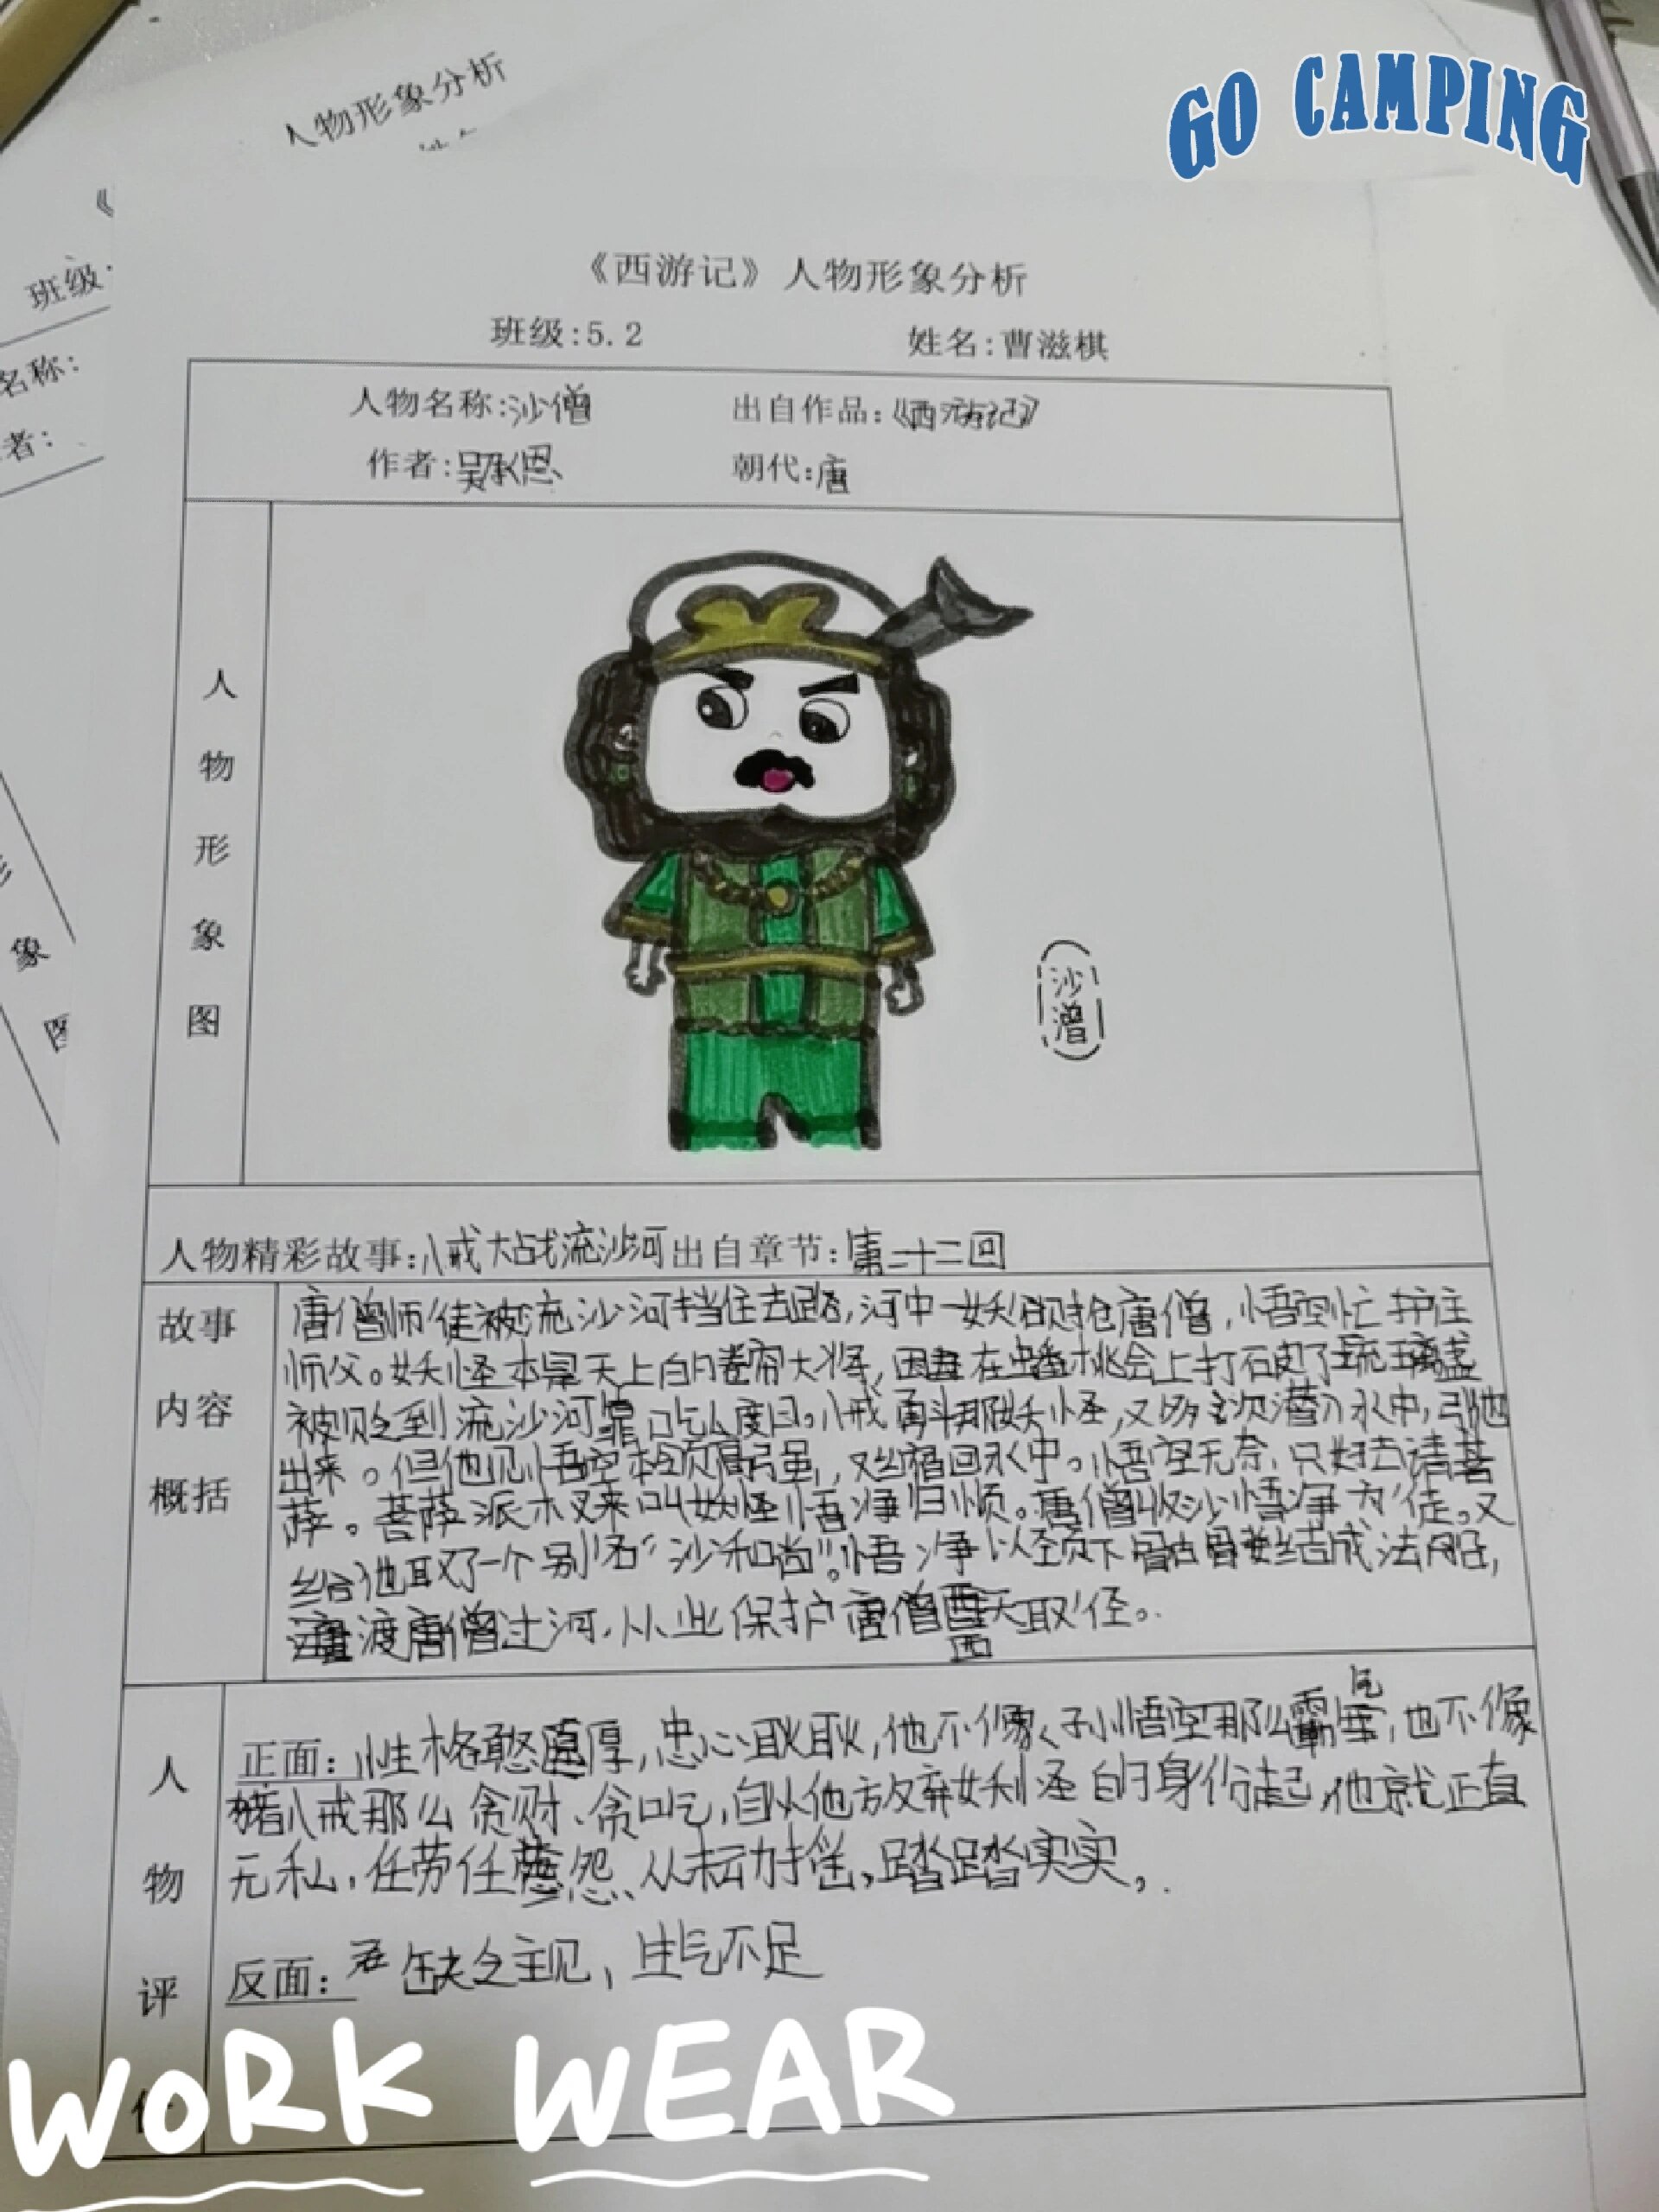 人物形象分析
GO CAMPING
《
班级
名称:
者:
象
图
《西游记》人物形象分析
班级:5.2 姓名:曹滋棋
人物名称:沙僧 出自作品:《西游记》
作者:吴承恩 朝代:唐
人物形象图
沙僧
人物精彩故事:八戒大战流沙河 出自章节:第二十二回
故事内容概括
唐僧师徒被流沙河挡住去路,河中一妖欲抢唐僧,悟空忙护住
师父。妖怪本是天上的卷帘大将,因在蟠桃会上打破了琉璃盏
被贬到流沙河靠吃人度日。八戒勇斗那妖怪,又多次潜入水中,引他
出来。但他见悟空本领高强,又缩回水中。悟空无奈,只好去请菩
萨。菩萨派木叉来叫妖怪悟净归顺。唐僧收沙悟净为徒。又
给他取了一个别名“沙和尚”。悟净以颈下骷髅结成法船,
渡唐僧过河,从此保护唐僧西天取径。
人物评价
正面:性格憨厚,忠心耿耿,他不像孙悟空那么霸气,也不像
猪八戒那么贪财、贪吃,自从他放弃妖怪的身份起,他就正直
无私,任劳任怨、从未动摇,踏踏实实。
反面:缺乏主见,生气不足
WORK WEAR